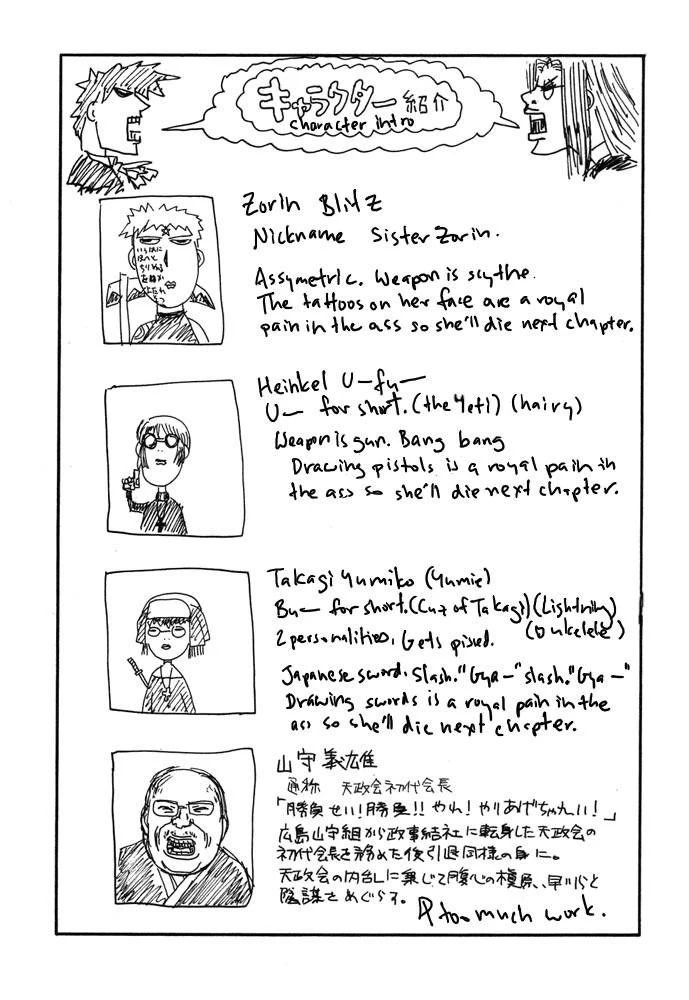 キャラクター紹介
character intro
Zorin Blitz
Nickname Sister Zorin.
いろはに
ほへと
ちりぬる
Assymetric. Weapon is scythe.
The tattoos on her face are a royal
pain in the ass so she'll die next chapter.
Heinkel U-fu-
U- for short. (the Yeti) (hairy)
Weapon is gun. Bang bang
Drawing pistols is a royal pain in
the ass so she'll die next chapter.
Takagi Yumiko (Yumie)
Bu- for short. (Cuz of Takagi) (Lightning)
(Oukelele)
2 personalities. Gets pissed.
Japanese sword. Slash. "Gya-" slash. "Gya-"
Drawing swords is a royal pain in the
ass so she'll die next chapter.
山守義雄
通称 天政会初代会長
「勝負せい!勝負!! やれ!やりあげちゃれい!」
広島山守組から政事結社に転身した天政会の
初代会長を務めた後引退同様の身に。
天政会の内乱に乗じて腹心の槙原、早川らと
陰謀をめぐらす。
too much work.